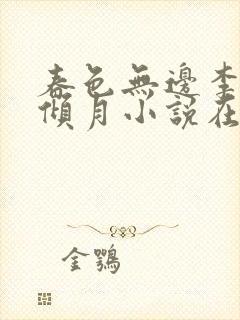 春色無邊李
傾月小說在
金鶚